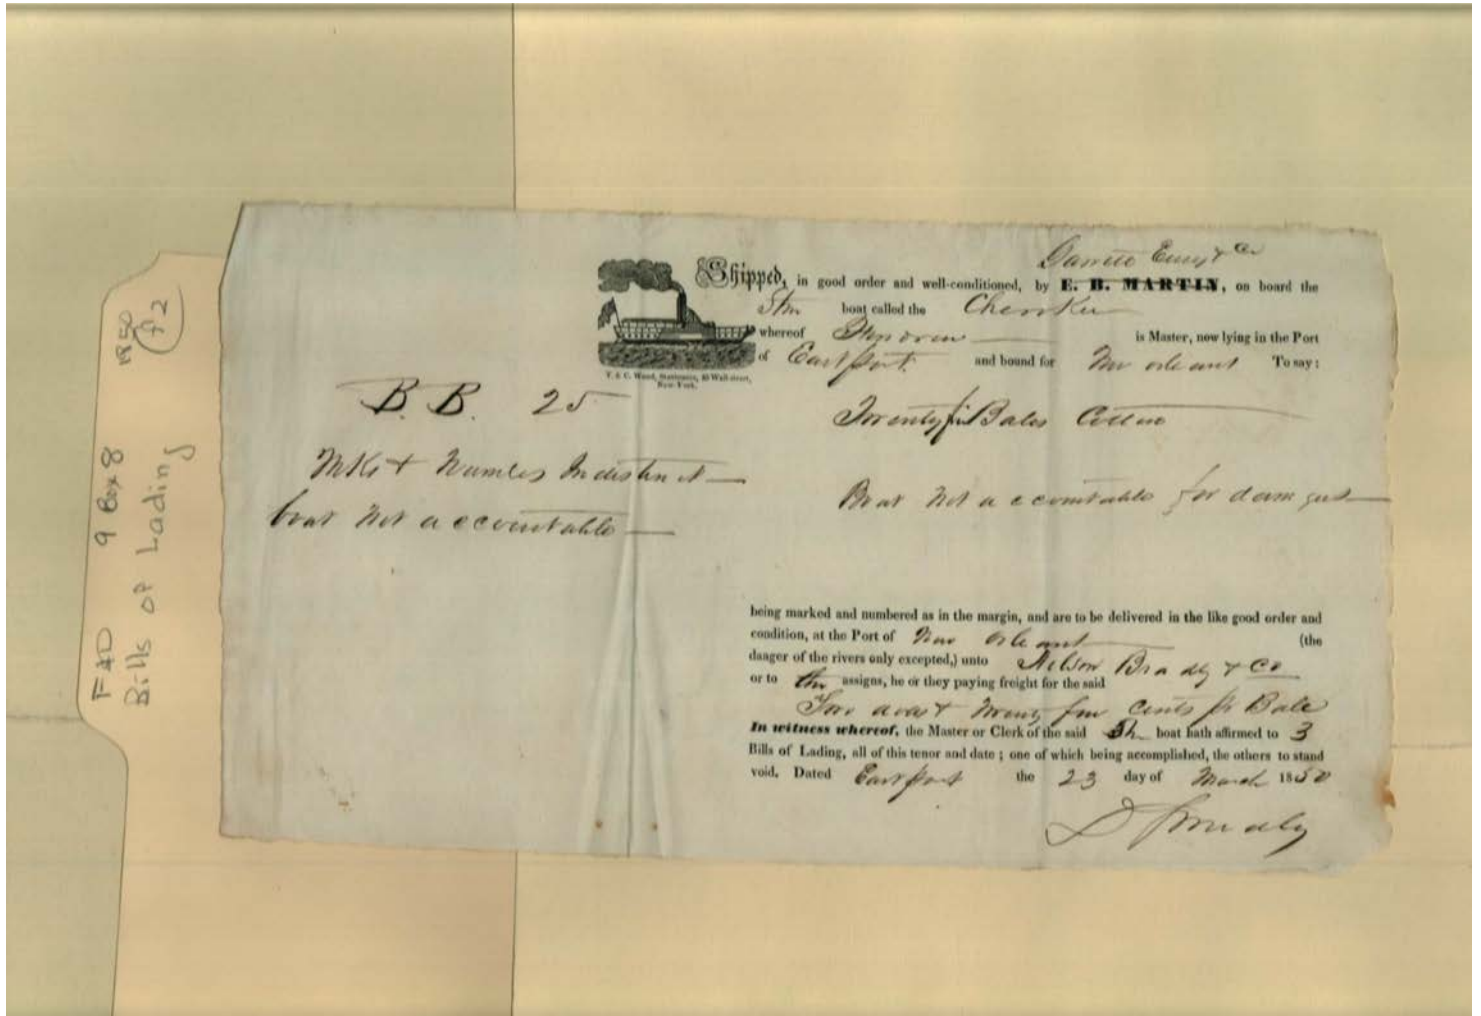 1850
f2
FAD 9 Box 8
Bills of Lading
Garrett &
Shipped, in good order and well-conditioned, by E. B. MARTIN, on board the
Stm boat called the Cherokee
whereof is Master, now lying in the Port
of Eastport and bound for New orleans To say:
T. & C. Wood, Stationers, Wall-street,
New-York.
B.B. 25
Twenty five Bales Cotton
Mks & Numbers Indistinct
boat Not accountable
Boat Not accountable for damages
being marked and numbered as in the margin, and are to be delivered in the like good order and
condition, at the Port of New Orleans (the
danger of the rivers only excepted,) unto Nelson Brady & Co
or to assigns, he or they paying freight for the said
cents pr Bale
In witness whereof, the Master or Clerk of the said boat hath affirmed to 3
Bills of Lading, all of this tenor and date; one of which being accomplished, the others to stand
void. Dated Eastport the 23 day of March 1850